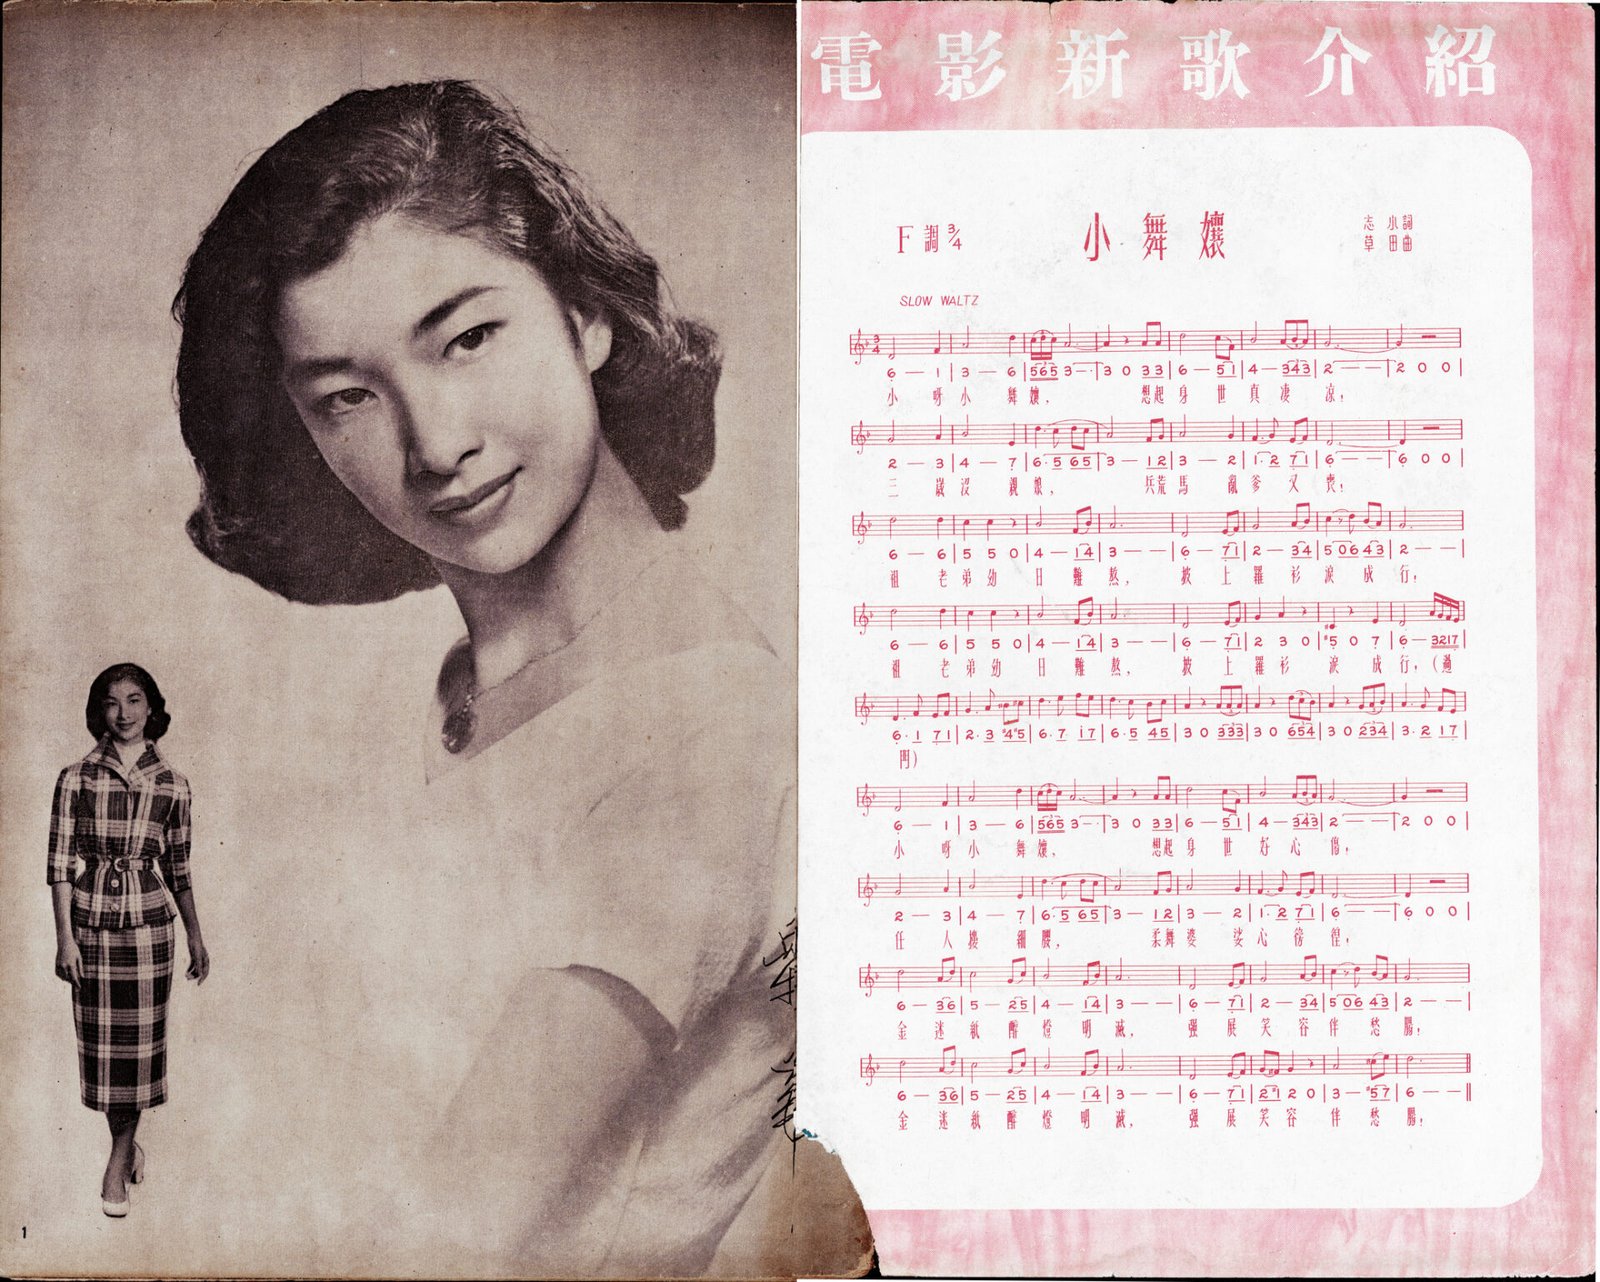 1
電影新歌介紹
F調 3/4
小舞孃
小詞
忘
草田曲
SLOW WALTZ
6 — 1 | 3 — 6 | 565 3 — · | 3 0 33 | 6 — 51 | 4 — 343 | 2 — — | 2 0 0 |
小呀小舞孃，想起身世真凄涼；
2 — 3 | 4 — 7 | 6·5 65 | 3 — 12 | 3 — 2 | 1·2 71 | 6 — — | 6 0 0 |
三歲沒親娘，兵荒馬亂爹又喪；
6 — 6 | 5 5 0 | 4 — 14 | 3 — — | 6 — 71 | 2 — 34 | 5 06 43 | 2 — — |
祖老弟幼日難熬，披上羅衫淚成行；
6 — 6 | 5 5 0 | 4 — 14 | 3 — — | 6 — 71 | 2 3 0 | #5 0 7 | 6 — 3217 |
祖老弟幼日難熬，披上羅衫淚成行；(過
6·1 71 | 2·3 #4#5 | 6·7 17 | 6·5 45 | 3 0 333 | 3 0 654 | 3 0 234 | 3·2 17 |
門)
6 — 1 | 3 — 6 | 565 3 — · | 3 0 33 | 6 — 51 | 4 — 343 | 2 — — | 2 0 0 |
小呀小舞孃，想起身世好心傷；
2 — 3 | 4 — 7 | 6·5 65 | 3 — 12 | 3 — 2 | 1·2 71 | 6 — — | 6 0 0 |
任人摟細腰，柔舞婆娑心徬徨；
6 — 36 | 5 — 25 | 4 — 14 | 3 — — | 6 — 71 | 2 — 34 | 5 06 43 | 2 — — |
金迷紙醉燈明滅，強展笑容伴愁腸；
6 — 36 | 5 — 25 | 4 — 14 | 3 — — | 6 — 71 | 2#1 2 0 | 3 — #57 | 6 — — ‖
金迷紙醉燈明滅，強展笑容伴愁腸；